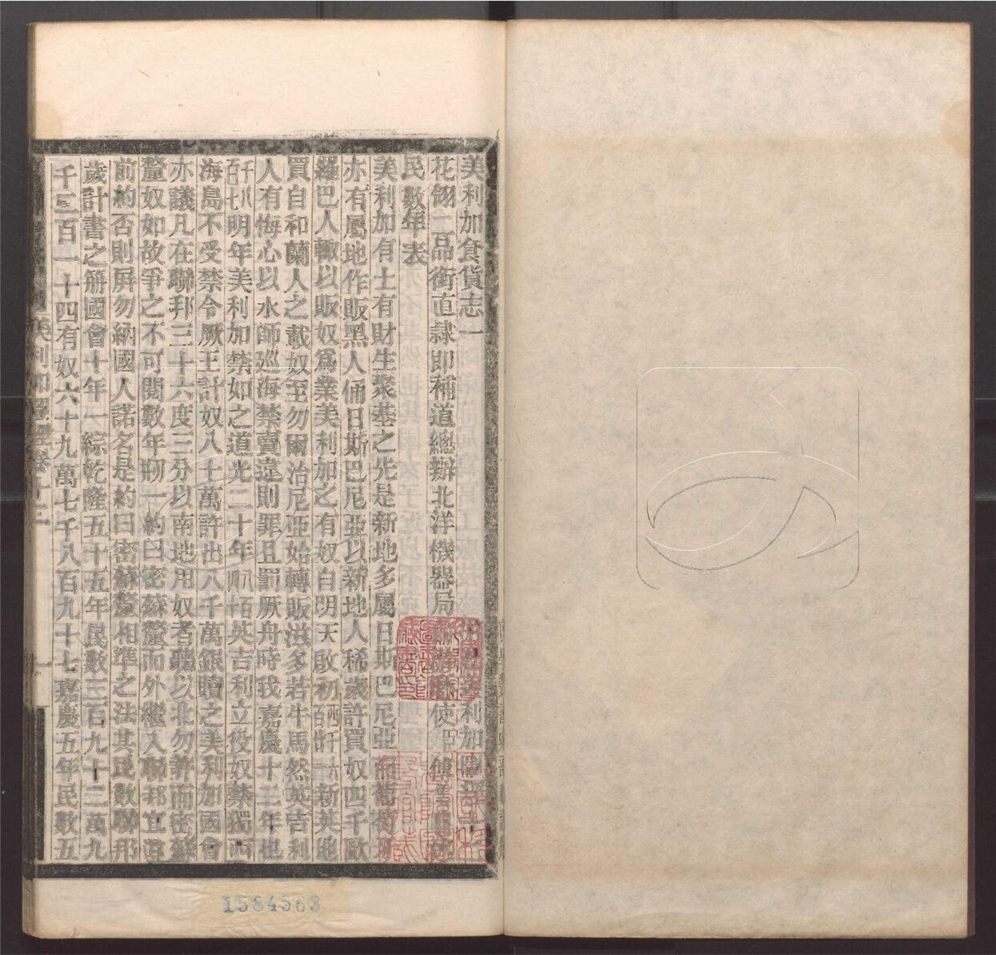 美利加食貨志一
花翎二品銜直隸即補道總辦北洋機器局 使 傅雲龍
民數年表
美利加有土有財生聚基之先是新地多屬日斯巴尼亞而葡萄牙
亦有屬地作販黑人俑日斯巴尼亞以新地人稀歲許買奴四千歐
羅巴人輒以販奴為業美利加之有奴自明天啟初 新英地
買自和蘭人之載奴至勿爾治尼亞始轉販滋多若牛馬然英吉利
人有悔心以水師巡海禁賣違則罪且罰厥舟時我嘉慶十三年也
明年美利加禁如之道光二十年 英吉利立役奴禁獨西
海島不受禁令厥王計奴八十萬許出八千萬銀贖之美利加國會
亦議凡在聯邦三十六度三分以南地用奴者聽以北勿許而密蘇
釐奴如故爭之不可閱數年剏一約曰密蘇釐而外繼人聯邦宜遵
前約否則屏勿納國人諾名是約曰密蘇釐相準之法其民數聯邦
歲計書之冊國會十年一綜乾隆五十五年民數三百九十二萬九
千二百一十四有奴六十九萬七千八百九十七嘉慶五年民數五
美利加 卷十二
一
1584563